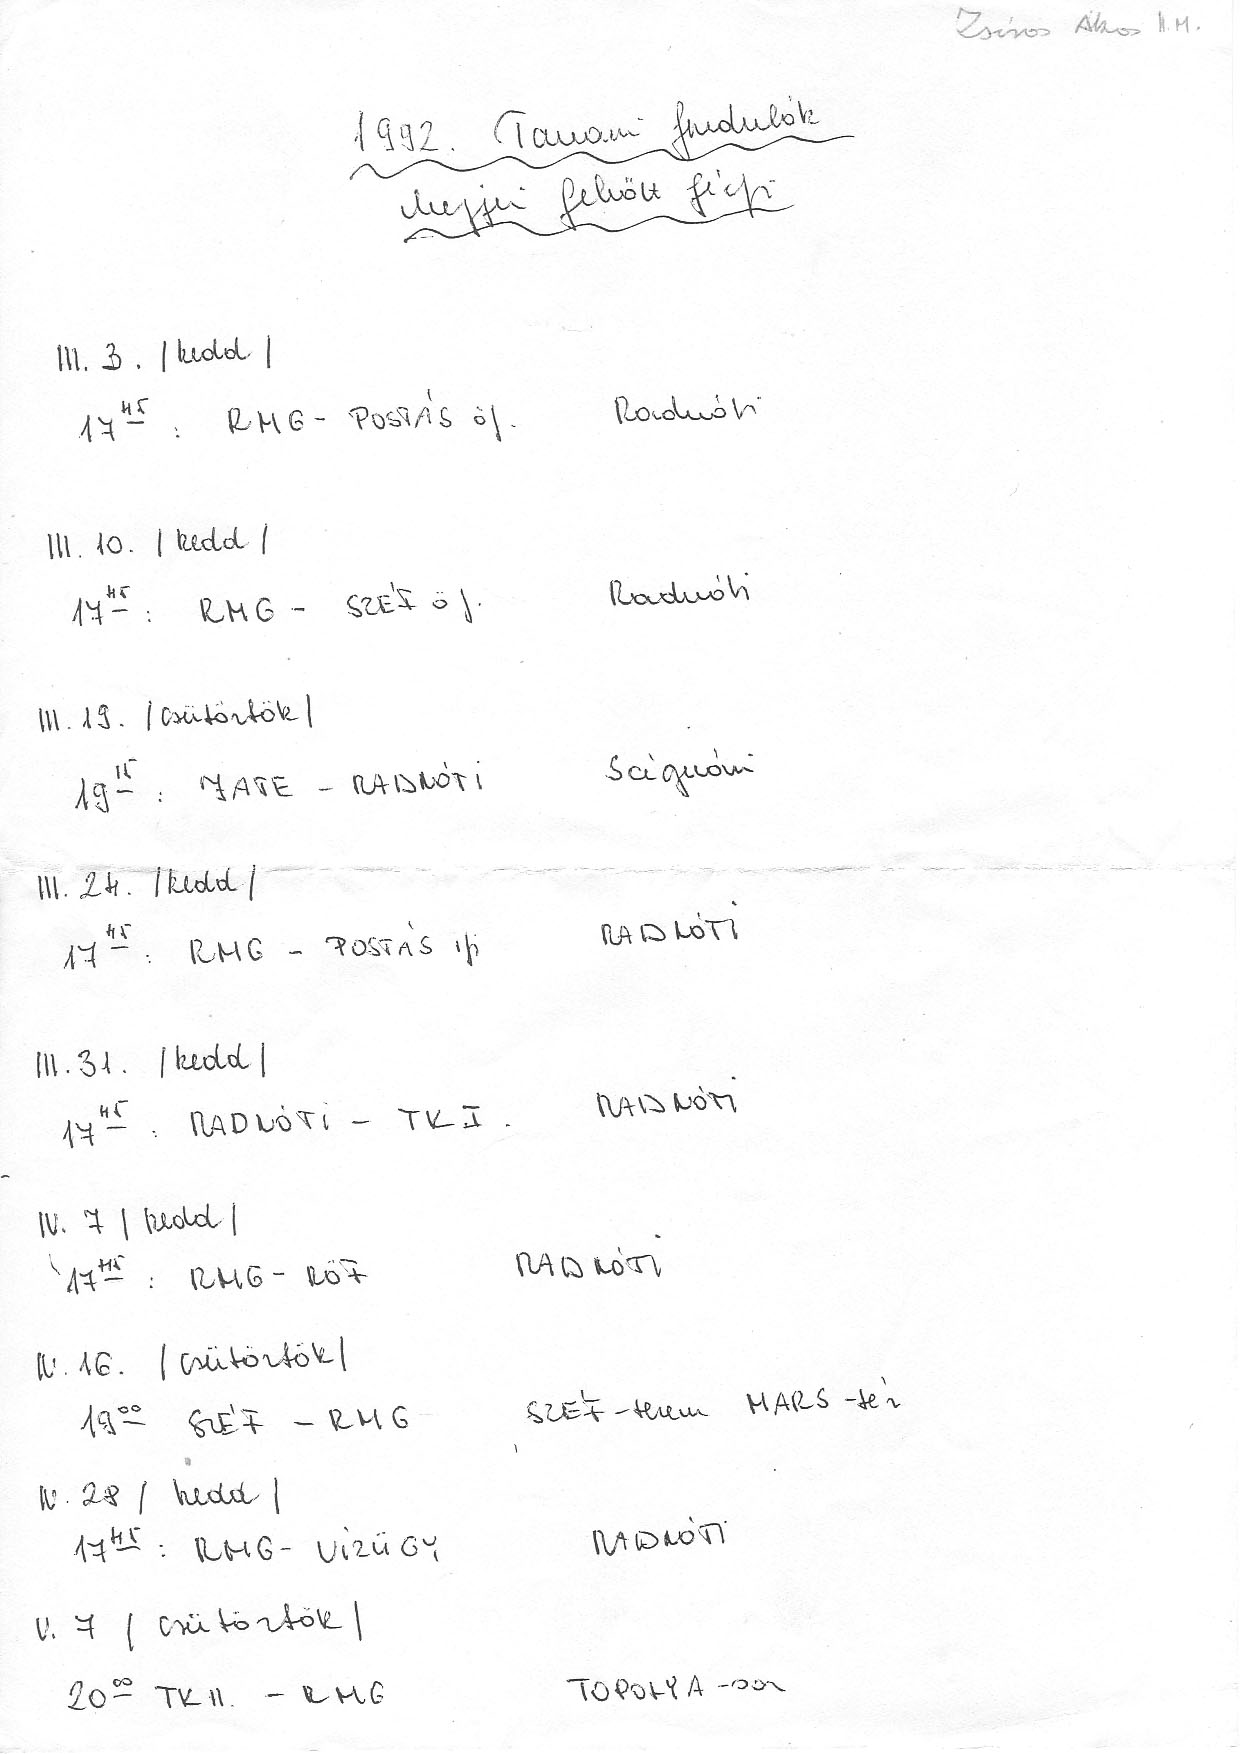 Zsíros Ákos II.M.
1992. Tavaszi fordulók
Megyei felnőtt férfi
III. 3. /kedd/
17 45 : RMG - POSTÁS öf. Radnóti
III. 10. /kedd/
17 45 : RMG - SZÉF öf. Radnóti
III. 19. /csütörtök/
19 15 : JATE - RADNÓTI Ságvári
III. 24. /kedd/
17 45 : RMG - POSTÁS ifi RADNÓTI
III. 31. /kedd/
17 45 : RADNÓTI - TK I. RADNÓTI
IV. 7 /kedd/
17 45 : RMG - KÖF RADNÓTI
IV. 16. /csütörtök/
19 00 SZÉF - RMG SZÉF-terem MARS-tér
IV. 28 /kedd/
17 45 : RMG - VÍZÜGY RADNÓTI
V. 7 /csütörtök/
20 00 TK II. - RMG TOPOLYA-sor